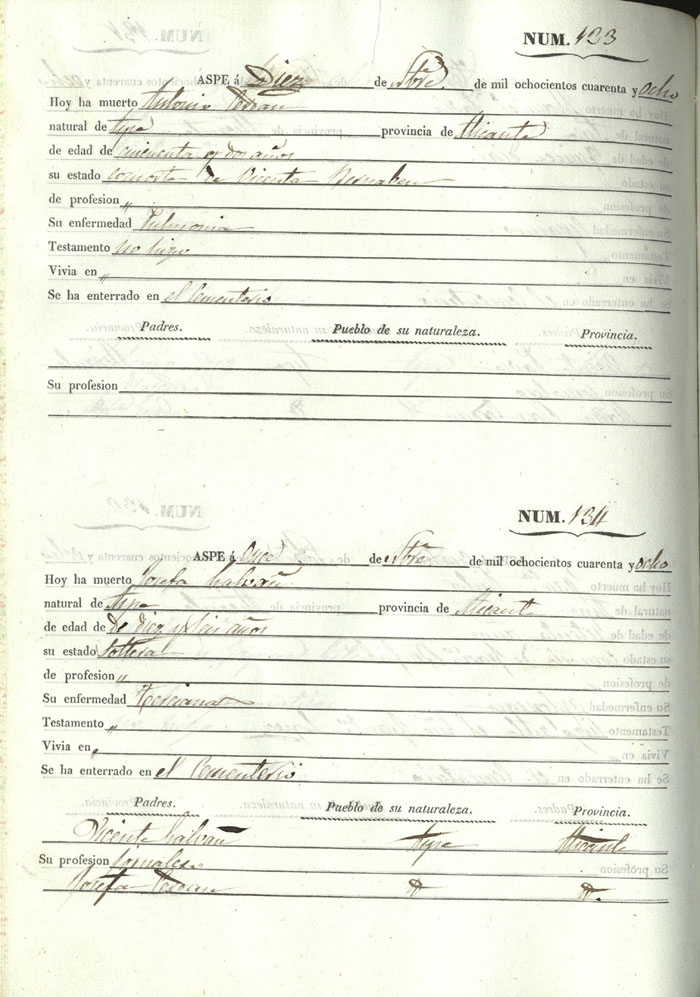 NUM. 133
ASPE á Diez de 8bre. de mil ochocientos cuarenta y ocho
Hoy ha muerto Antonio
natural de Aspe provincia de Alicante
de edad de cincuenta y dos años
su estado consorte de Vicenta Bernabeu
de profesion „
Su enfermedad Pulmonia
Testamento no hizo
Vivia en „
Se ha enterrado en el Cementerio
Padres. Pueblo de su naturaleza. Provincia.
Su profesion
NUM. 134
ASPE á Once de 8bre de mil ochocientos cuarenta y ocho
Hoy ha muerto Josefa Galvañ
natural de Aspe provincia de Alicante
de edad de de diez y seis años
su estado Soltera
de profesion „
Su enfermedad Tercianas
Testamento „
Vivia en „
Se ha enterrado en el Cementerio
Padres. Pueblo de su naturaleza. Provincia.
Vicente Galvañ Aspe Alicante
Su profesion Jornalero
Josefa